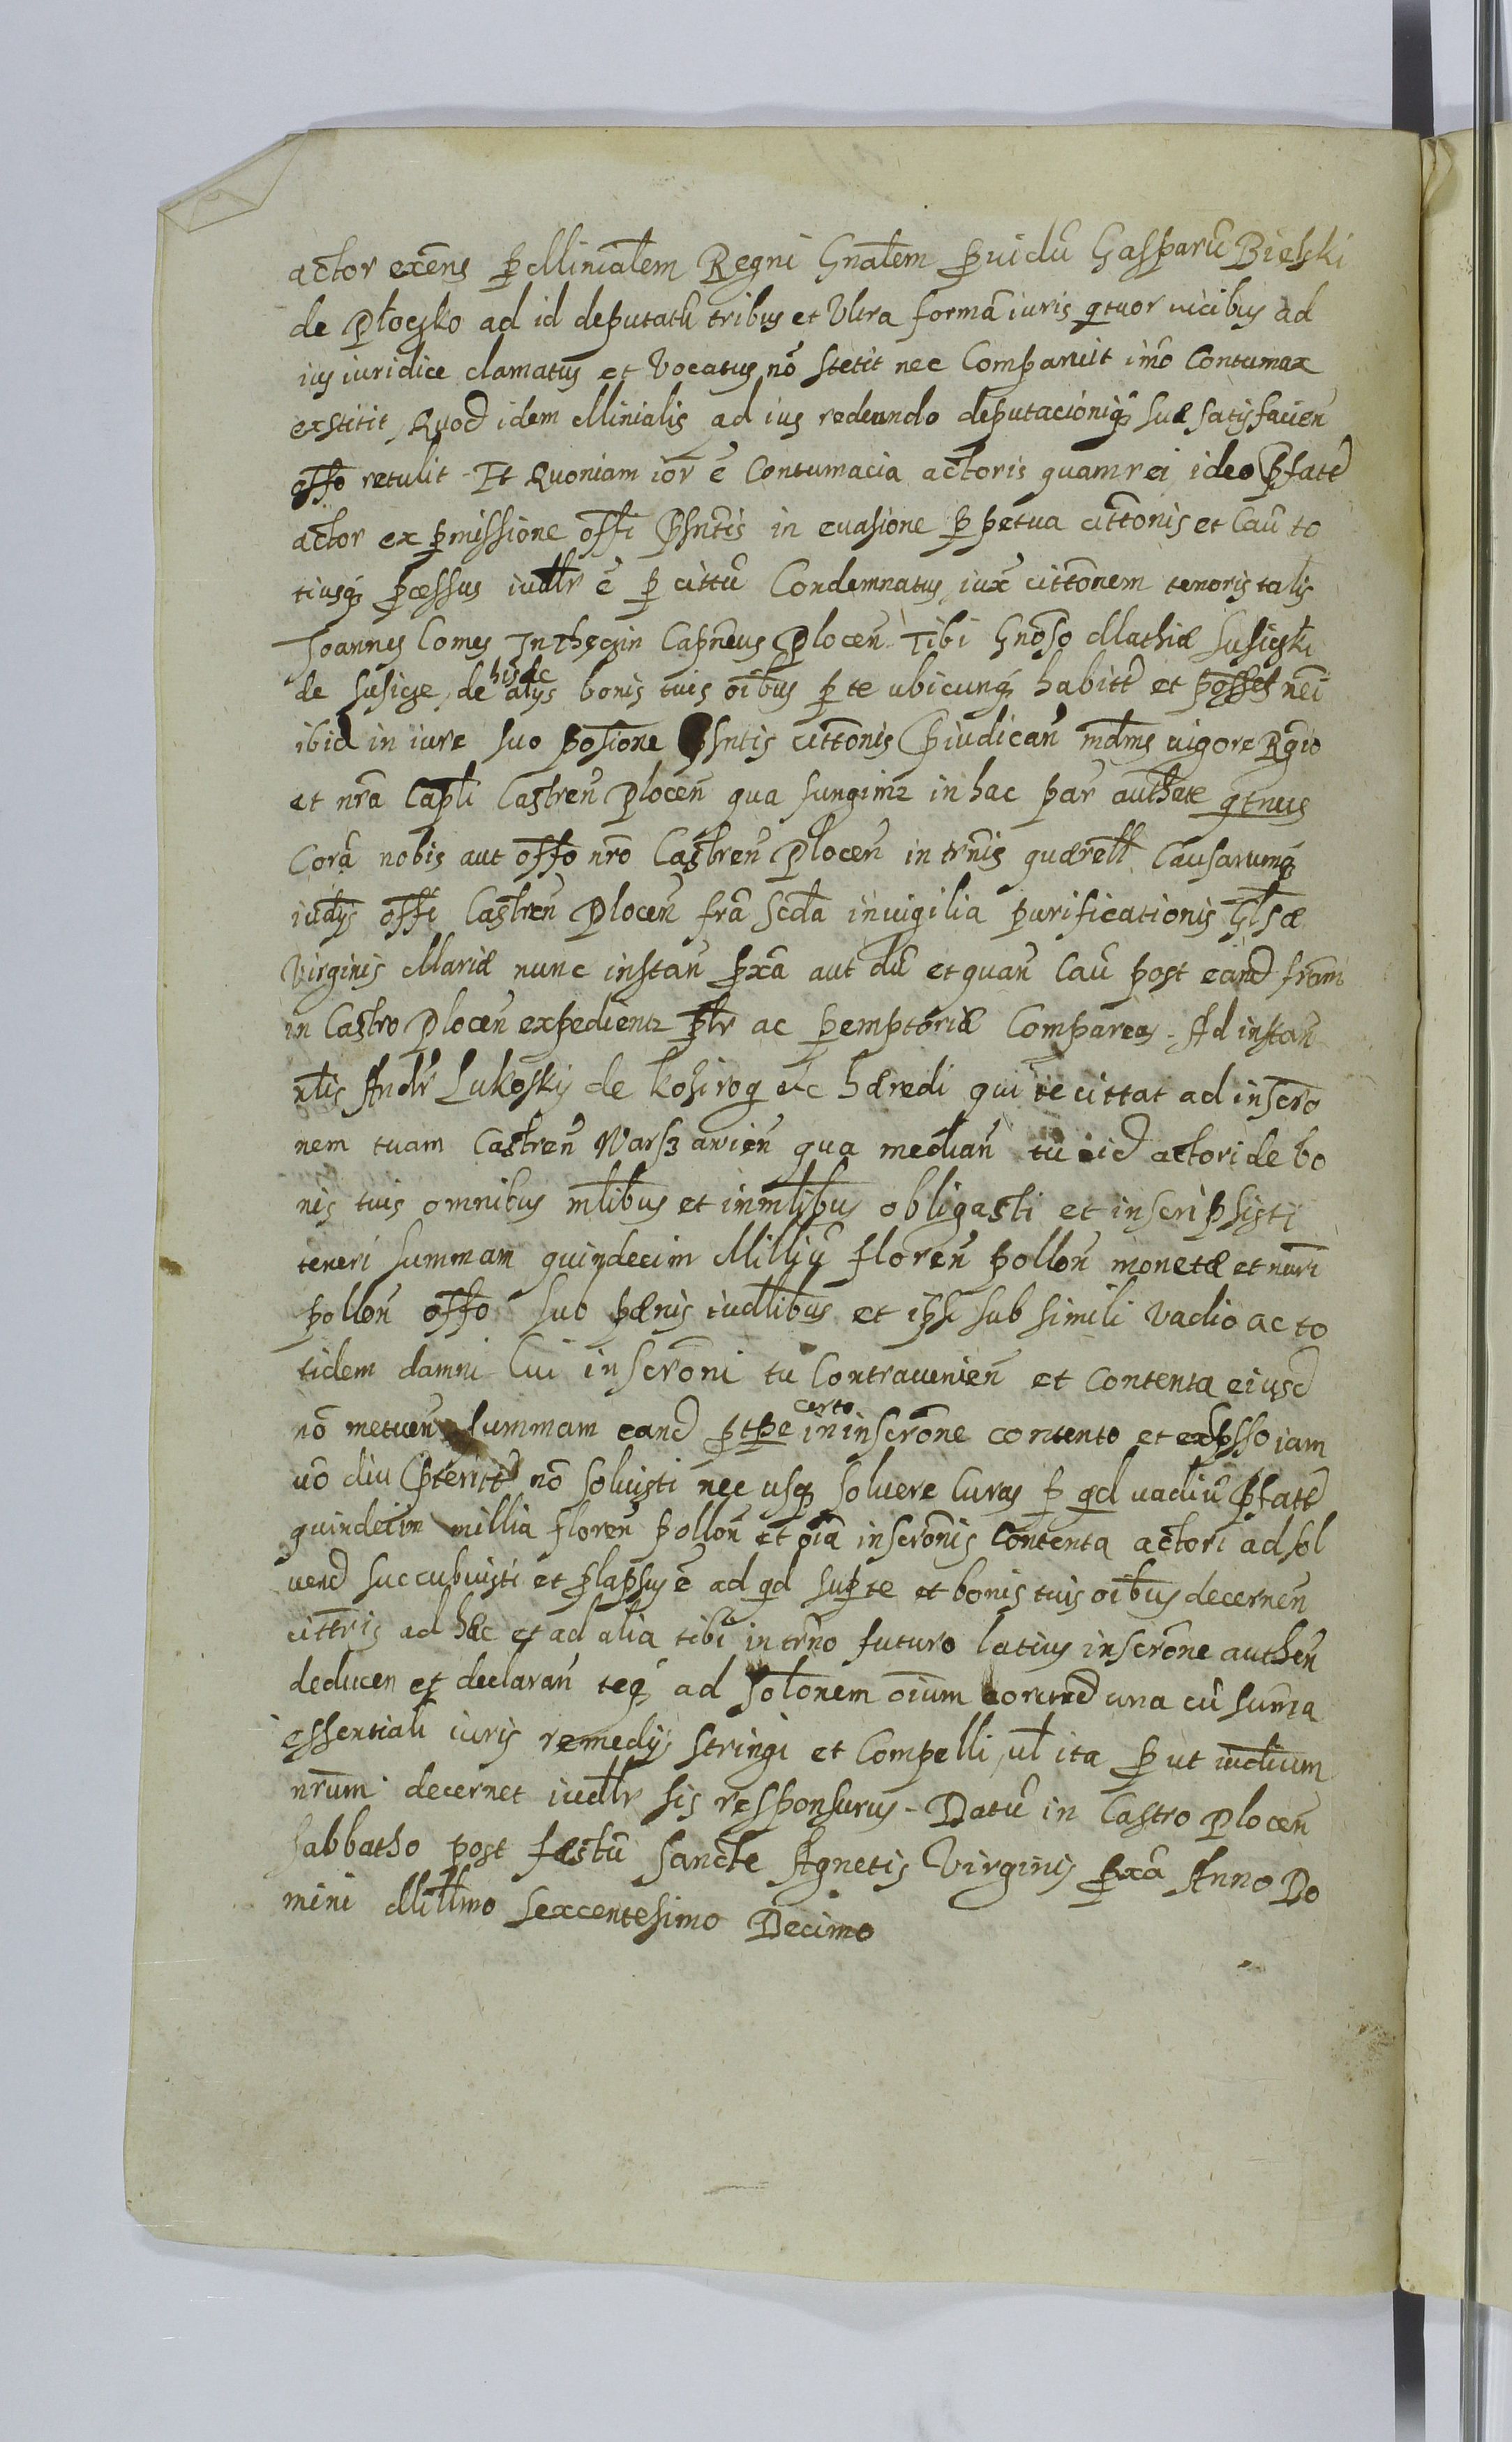 actor exens p Minialem Regni Gnalem pvidu Gasparu Bielski
de Płoczko ad id deputatu tribus et Vltra forma iuris qtuor vicibus ad
ius iuridice clamatus et Vocatus no stetit nec Comparuit imo Contumax
exstitit, Quod idem Minialis ad ius redeundo deputacioniq suæ satisfacien
offo retulit. Et Quoniam ior e Contumacia actoris quam rei ideo pfatꝰ
actor ex pmissione offi Pſntis in euasione ppetua cittonis et Cau to
tiusq pcessus iudlr e p cittu Condemnatus, iux cittonem tenoris talis
Joannes Comes In Thęczin Capneus Plocen Tibi Gnoso Mathiæ Susicski
de Susicze, de his ac alijs bonis tuis oibus p te ubicunq habitꝭ et posses nei
ibid in iure suo posione Psntis cittonis pjudican mdms vigore Rgio
et nra Capli Castren Plocen qua fungimr in hac par authate qtnus
Cora nobis aut offo nro Castren Plocen in trnis quærell Causarumq
iudijs offi Castren Plocen fra scda in vigilia purificationis Glsæ
Virginis Mariæ nunc instan pxa aut du et quan Cau post eand fram
in Castro Plocen expedientr plr ac pemptoriæ Compareas. Ad instan
nlis Andr Lukoskij de kosirog etc hæredi qui te cittat ad inscro
nem tuam Castren Warszawien qua median tu eid actori de bo
nis tuis omnibus mlibus et inmlibus obligasti et inscripsisti
teneri summam quindecim Milliu floren pollon monetæ et nuri
pollon offo suo pænis iudlibus et ipsi sub simili Vadio ac to
tidem damni Cui inscroni tu Contravenien et Contenta eiusd
no metuen summam eand ptpe certo in inscrone contento et expsso iam
vo diu pteritꝭ no solvisti nec usq solvere Curas p qd vadiu pfatꝭ
quindecim millia floren pollon et oia inscronis Contenta actori ad sol
vend succubuisti et plapsus e ad qd sup te et bonis tuis oibus decernen
cittris ad hæc et ad alia tibi in trno futuro latius inscrone authen
deducen et declaran teq ad solonem oium eorund una cu suma
essentiali iuris remedijs stringi et Compelli, ul ita p ut iudium
nrum decernet iudlr sis responsurus. Datu in Castro Plocen
Sabbatho post festu Sanctæ Agnetis Virginis pxa Anno Do
mini Millmo Sexcentesimo Decimo